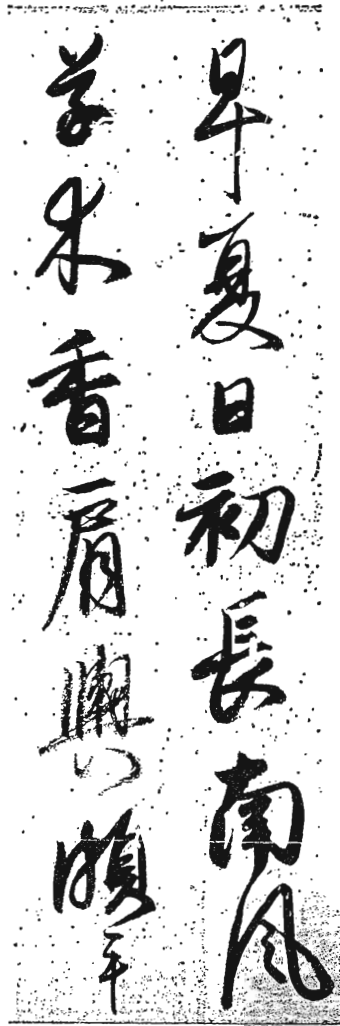 早夏日初長南風
草木香肩輿頗平